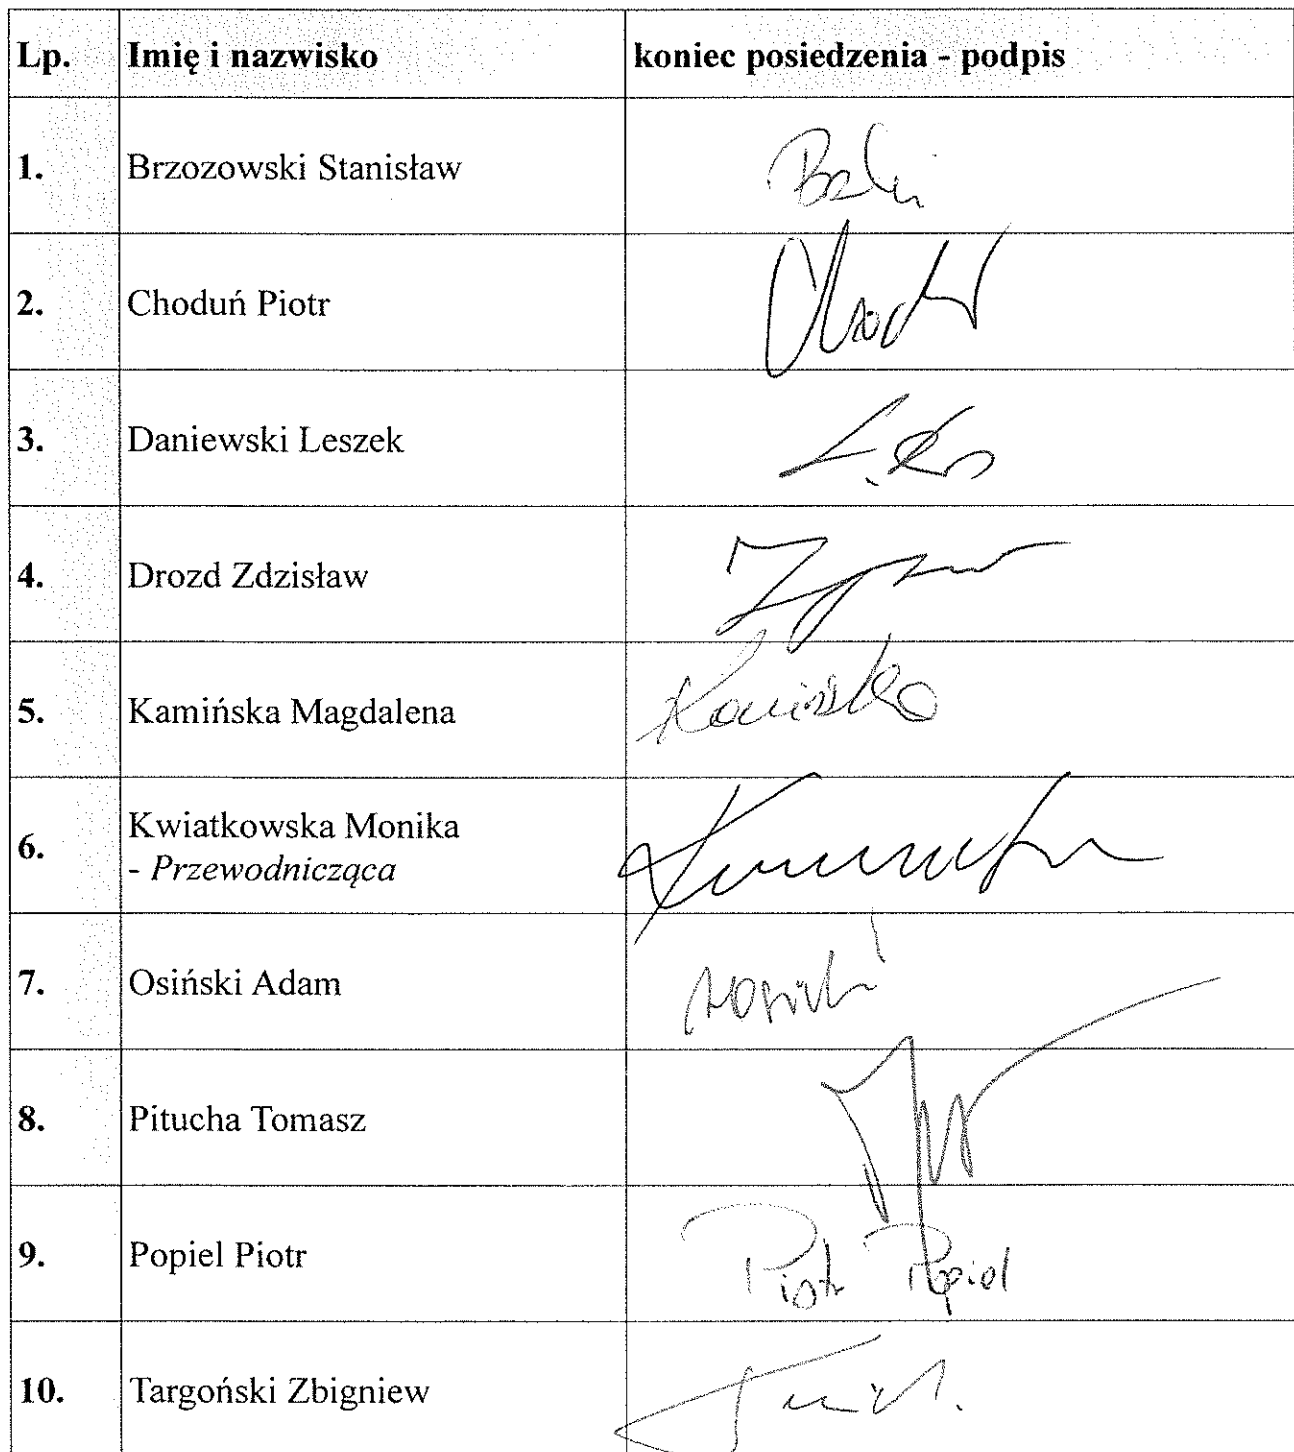 Lp. Imię i nazwisko koniec posiedzenia - podpis
1. Brzozowski Stanisław
2. Choduń Piotr
3. Daniewski Leszek
4. Drozd Zdzisław
5. Kamińska Magdalena
6. Kwiatkowska Monika
- Przewodnicząca
7. Osiński Adam
8. Pitucha Tomasz
9. Popiel Piotr Piotr Popiel
10. Targoński Zbigniew